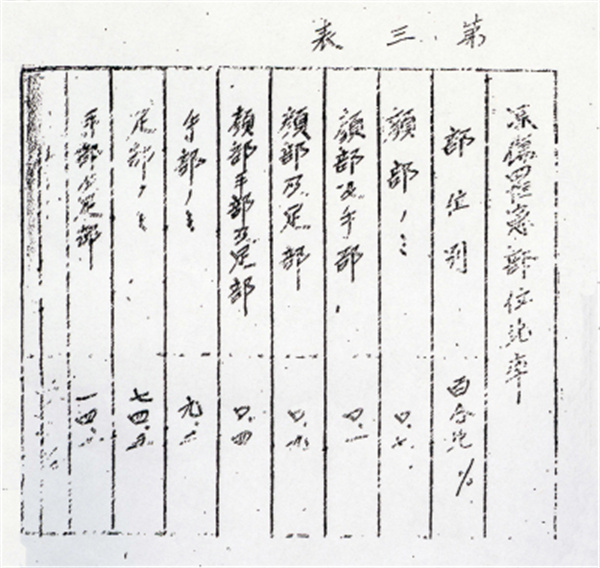 第三表
凍傷罹患部位比率
部位別 百分比%
顔部ノミ 〇.七
顔部及手部 〇.一
顔部及足部
顔部手部及足部 〇.四
手部ノミ
足部ノミ 七四.五
手部及足部